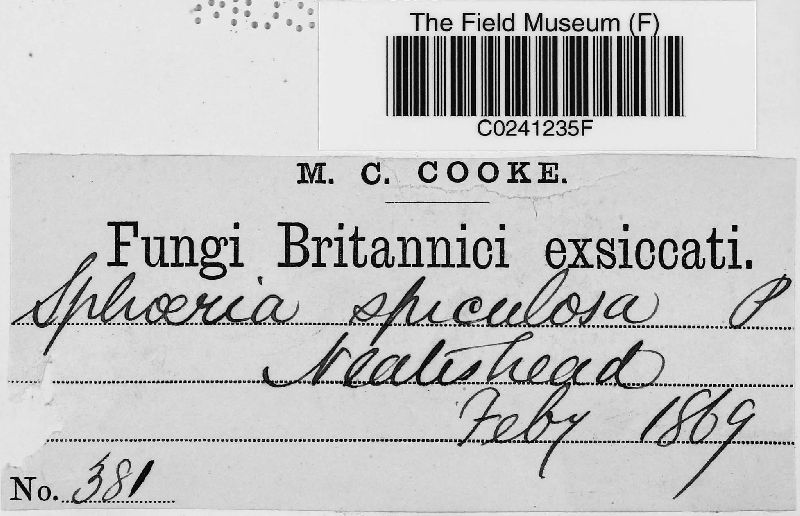 The Field Museum (F)
C0241235F
M. C. COOKE.
Fungi Britannici exsiccati.
Sphæria spiculosa P
Neatishead
Feby 1869
No. 381